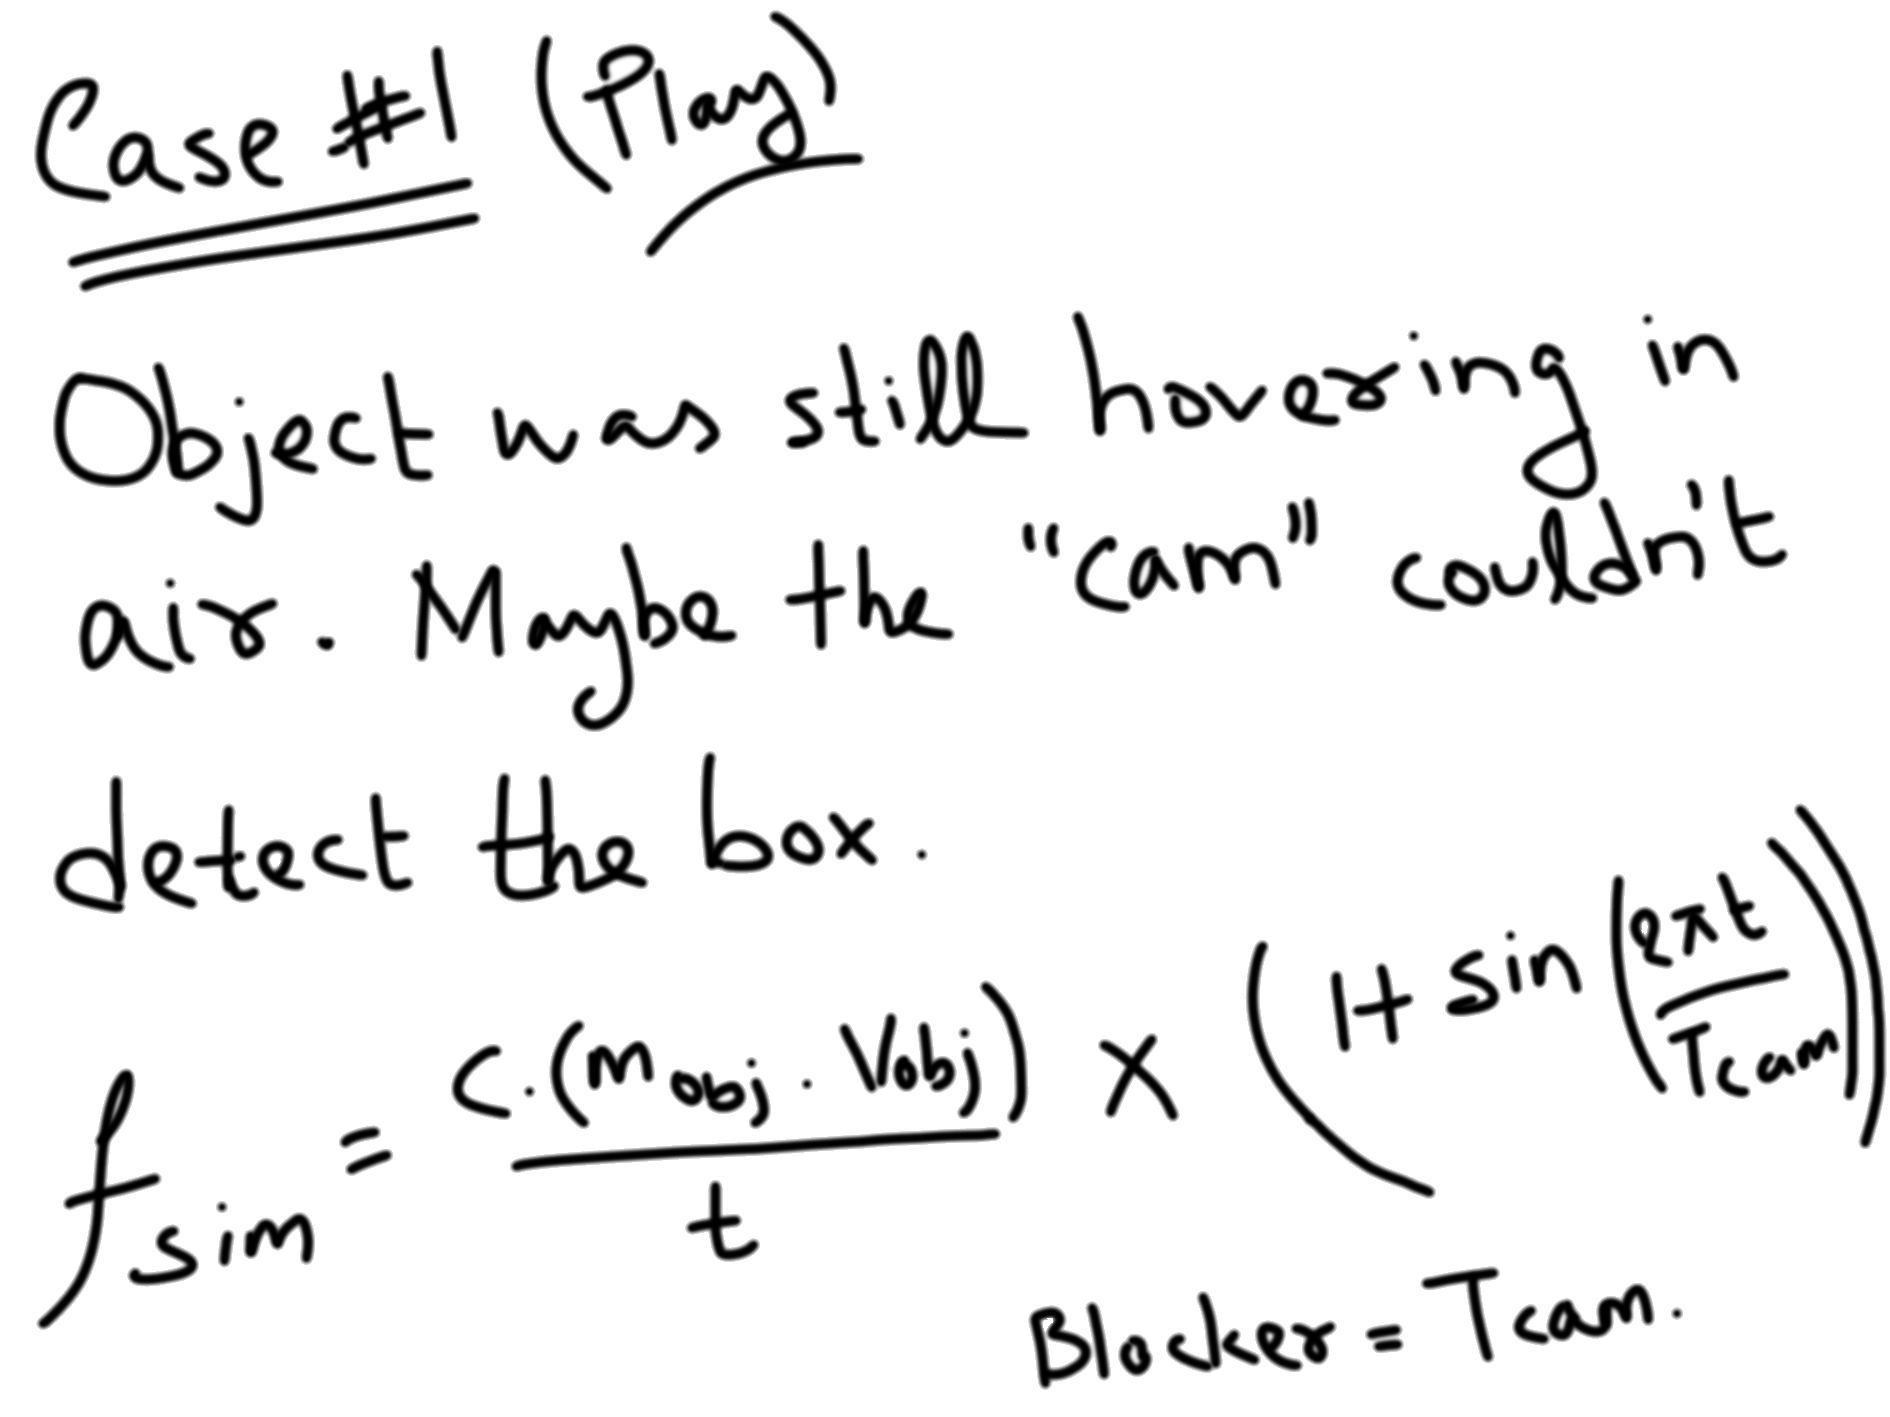 Case #1 (Play)
Object was still hovering in
air. Maybe the "cam" couldn't
detect the box.
f_sim = C.(m_obj . V_obj) / t × (1 + sin(2πt / T_cam))
Blocker = T_cam.